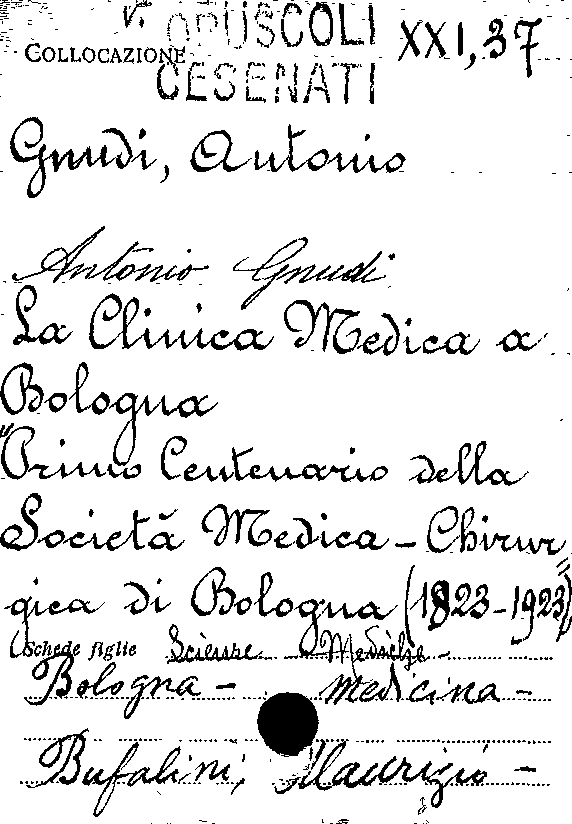 V. OPUSCOLI XXI, 37
COLLOCAZIONE
CESENATI
Gnudi, Antonio
Antonio Gnudi
La Clinica Medica a
Bologna
"Primo Centenario della
Società Medica - Chirur=
gica di Bologna (1823-1923)
Schede figlie Scienze Mediche -
Bologna - medicina -
Bufalini, Maurizio -